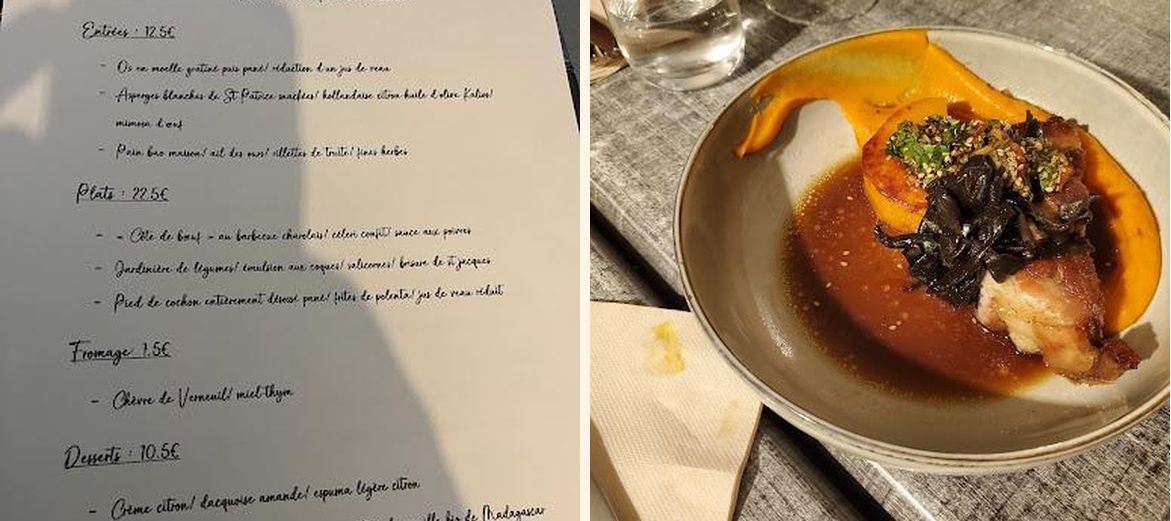 Entrées : 12.5€
- Os en moelle gratiné puis pané/ réduction d'un jus de veau
- Asperges blanches de St Patrice snackées/ hollandaise citron-huile d'olive Kalios/
mimosa d'œuf
- Pain bao maison/ ail des ours/ rillettes de truite/ fines herbes
Plats : 22.5€
- « Côte de bœuf » au barbecue charolais/ céleri confit/ sauce aux poivres
- Jardinière de légumes/ émulsion aux coques/ salicornes/ brisure de st jacques
- Pied de cochon entièrement désossé pané/ frites de polenta/ jus de veau réduit
Fromage 7.5€
- Chèvre de Verneuil/ miel-thym
Desserts : 10.5€
- Crème citron/ dacquoise amande/ espuma légère citron
de Madagascar